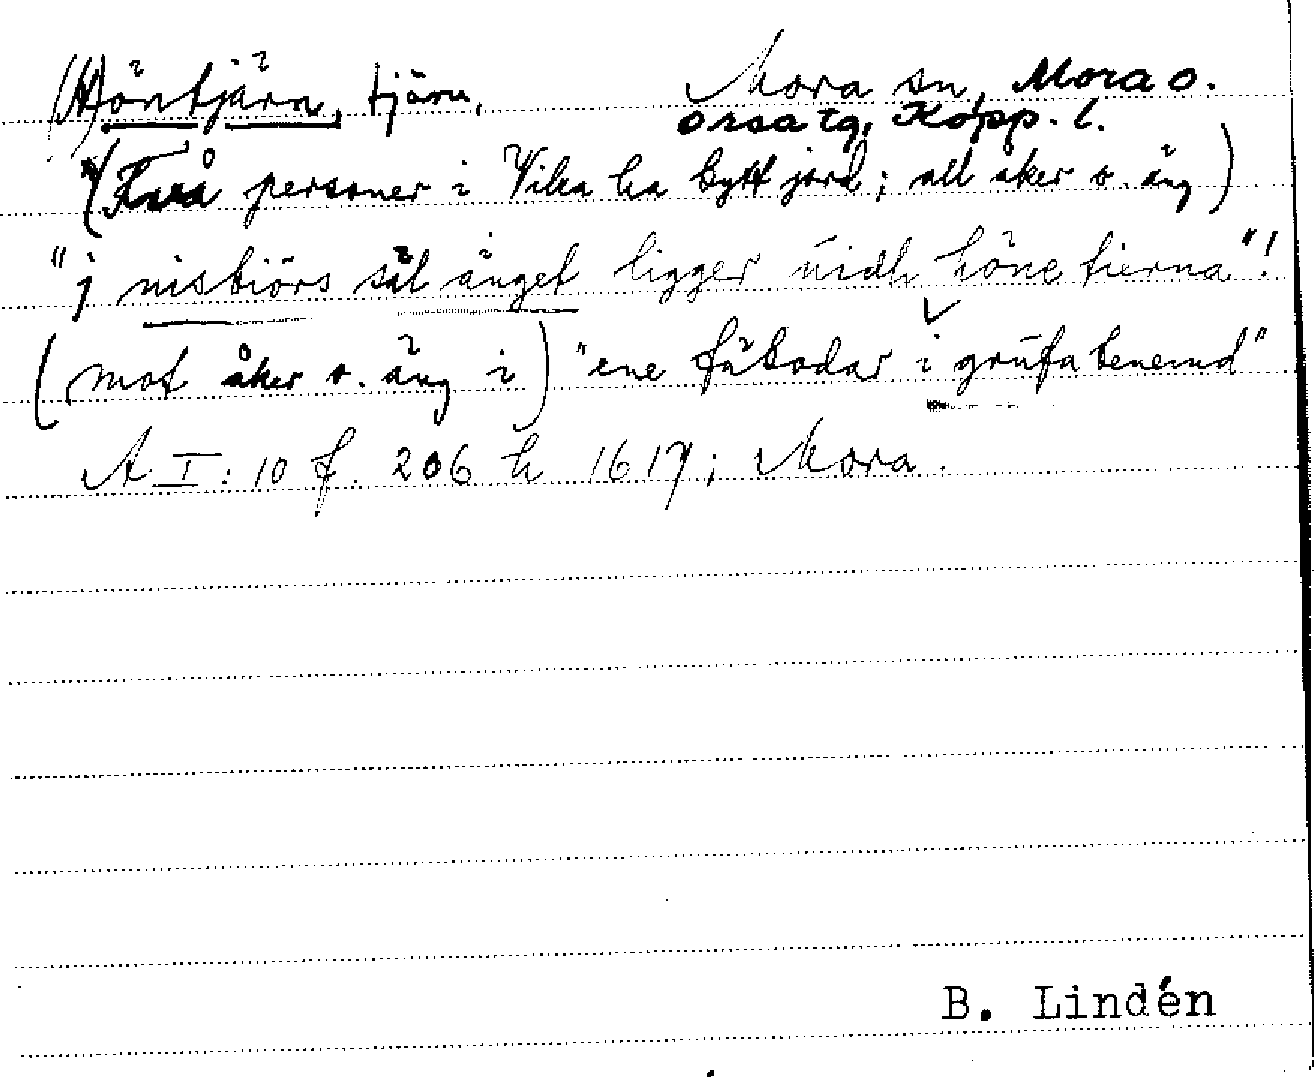 (H)öntjärn, tjärn, Mora sn, Mora o.
Orsa tg, Kopp. l.
(Två personer i Vika ha bytt jord; all åker o. äng)
"j nisbiörs säl änget ligger uidh höne tierna"!
(mot åker o. äng i) "ene fäbodar i grufa benemd"
A I: 10 f. 206 h 1617; Mora.
B. Lindén